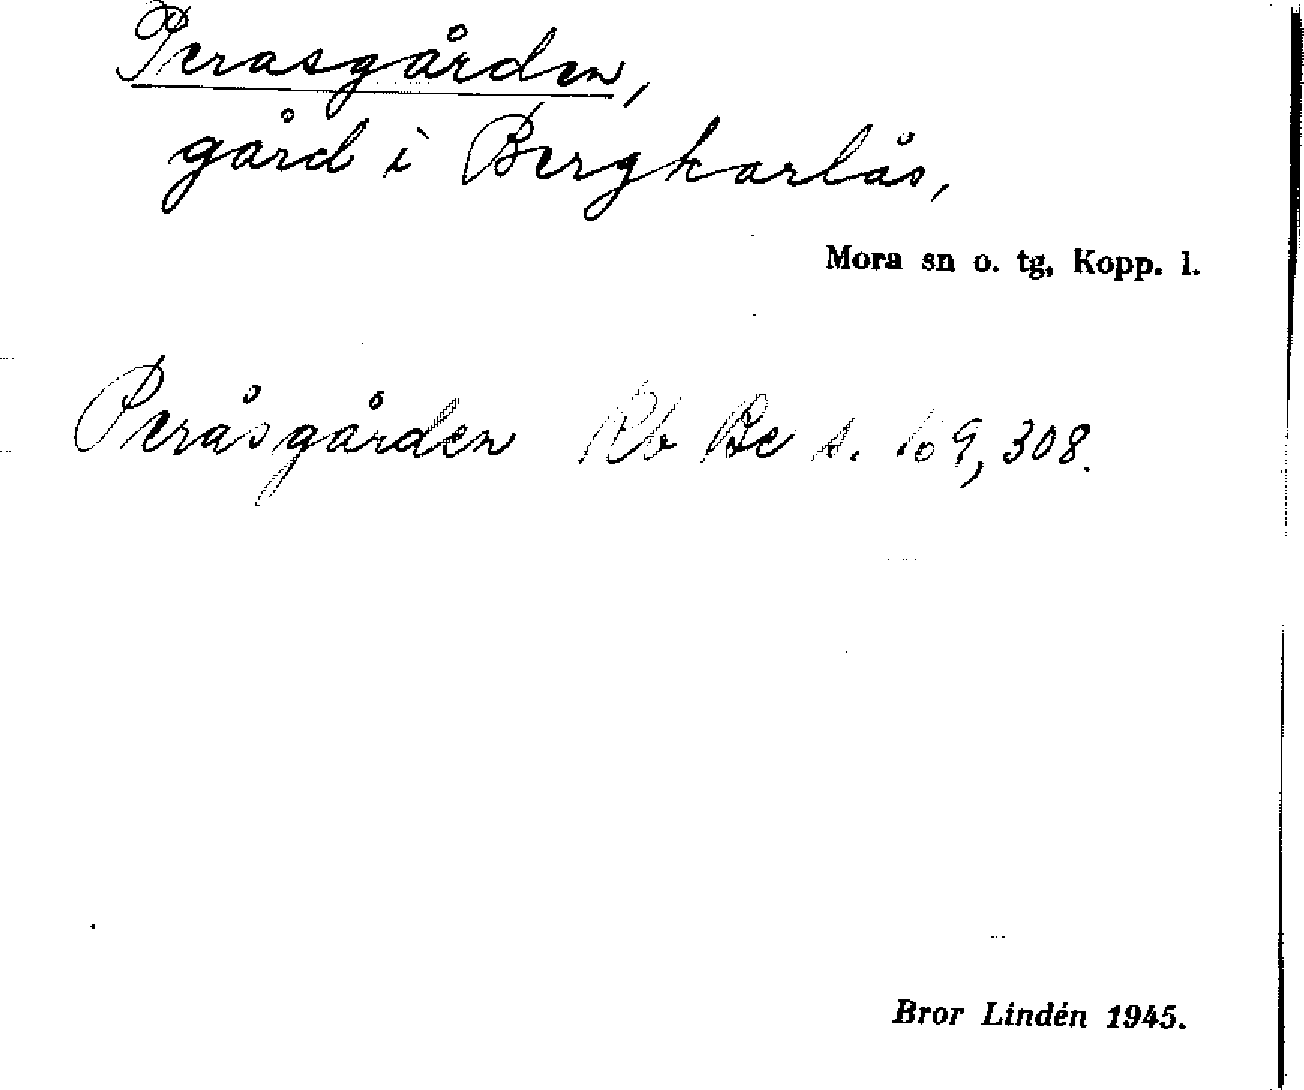 Perasgården,
gård i Bergkarlås,
Mora sn o. tg, Kopp. l.
Peråsgården Rb Be s. 169, 308.
Bror Lindén 1945.